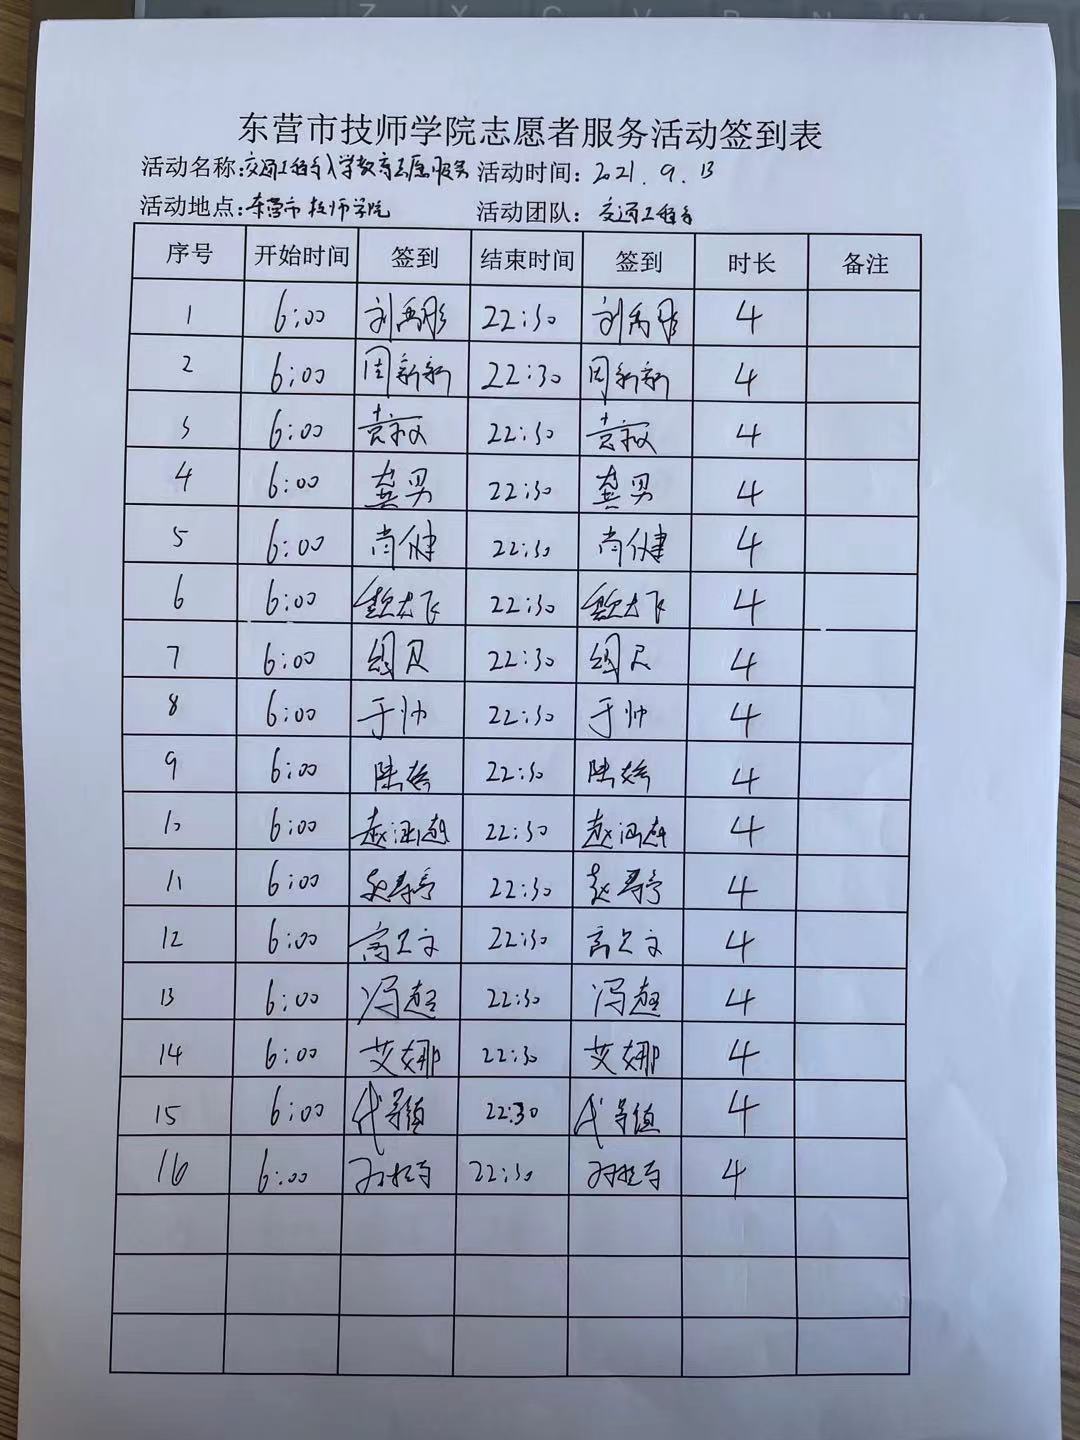 Z X C V B N M
东营市技师学院志愿者服务活动签到表
活动名称:交通工程系入学教育志愿服务 活动时间: 2021.9.13
活动地点:东营市技师学院 活动团队: 交通工程系
序号 开始时间 签到 结束时间 签到 时长 备注
1 6:00 刘禹彤 22:30 刘禹彤 4
2 6:00 周新新 22:30 周新新 4
3 6:00 22:30 4
4 6:00 龚男 22:30 龚男 4
5 6:00 尚健 22:30 尚健 4
6 6:00 22:30 4
7 6:00 22:30 4
8 6:00 于帅 22:30 于帅 4
9 6:00 陆婷 22:30 陆婷 4
10 6:00 赵涵越 22:30 赵涵越 4
11 6:00 赵寿亭 22:30 赵寿亭 4
12 6:00 高文 22:30 高文 4
13 6:00 冯超 22:30 冯超 4
14 6:00 艾娜 22:30 艾娜 4
15 6:00 代 22:30 代 4
16 6:00 22:30 4